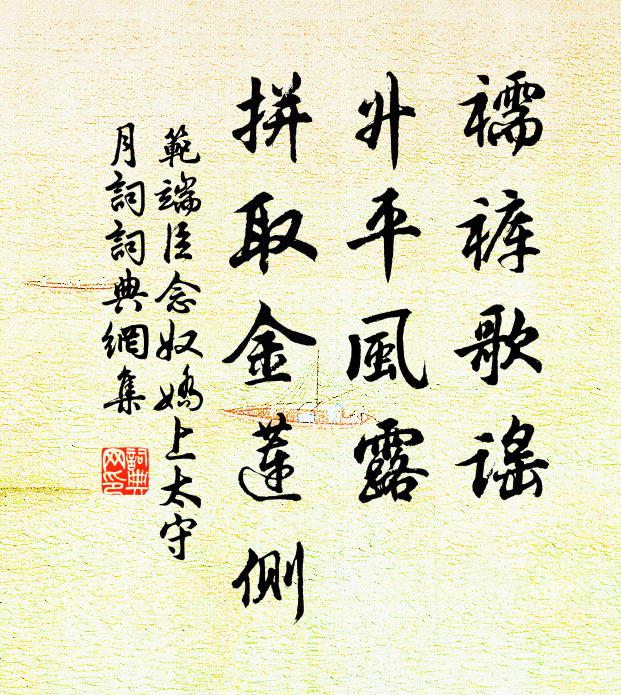 襦裤歌謠
升平風露
拼取金蓮側
範端臣念奴嬌上太守
月詞詞典網集
詞典网印